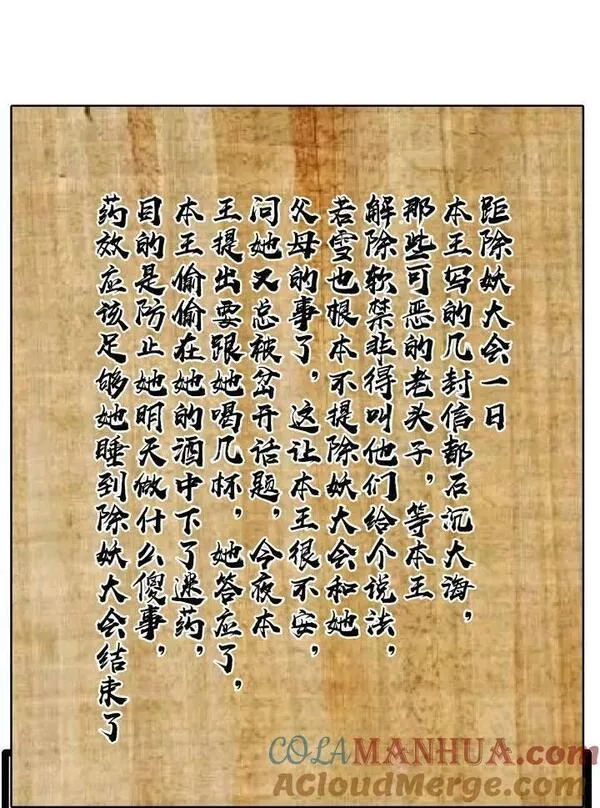 距除妖大会一日
本王写的几封信都石沉大海，
那些可恶的老头子，等本王
解除软禁非得叫他们给个说法，
若雪也根本不提除妖大会和她
父母的事了，这让本王很不安，
问她又总被岔开话题，今夜本
王提出要跟她喝几杯，她答应了，
本王偷偷在她的酒中下了迷药，
目的是防止她明天做什么傻事，
药效应该足够她睡到除妖大会结束了
COLAMANHUA.COM
AcloudMerge.com